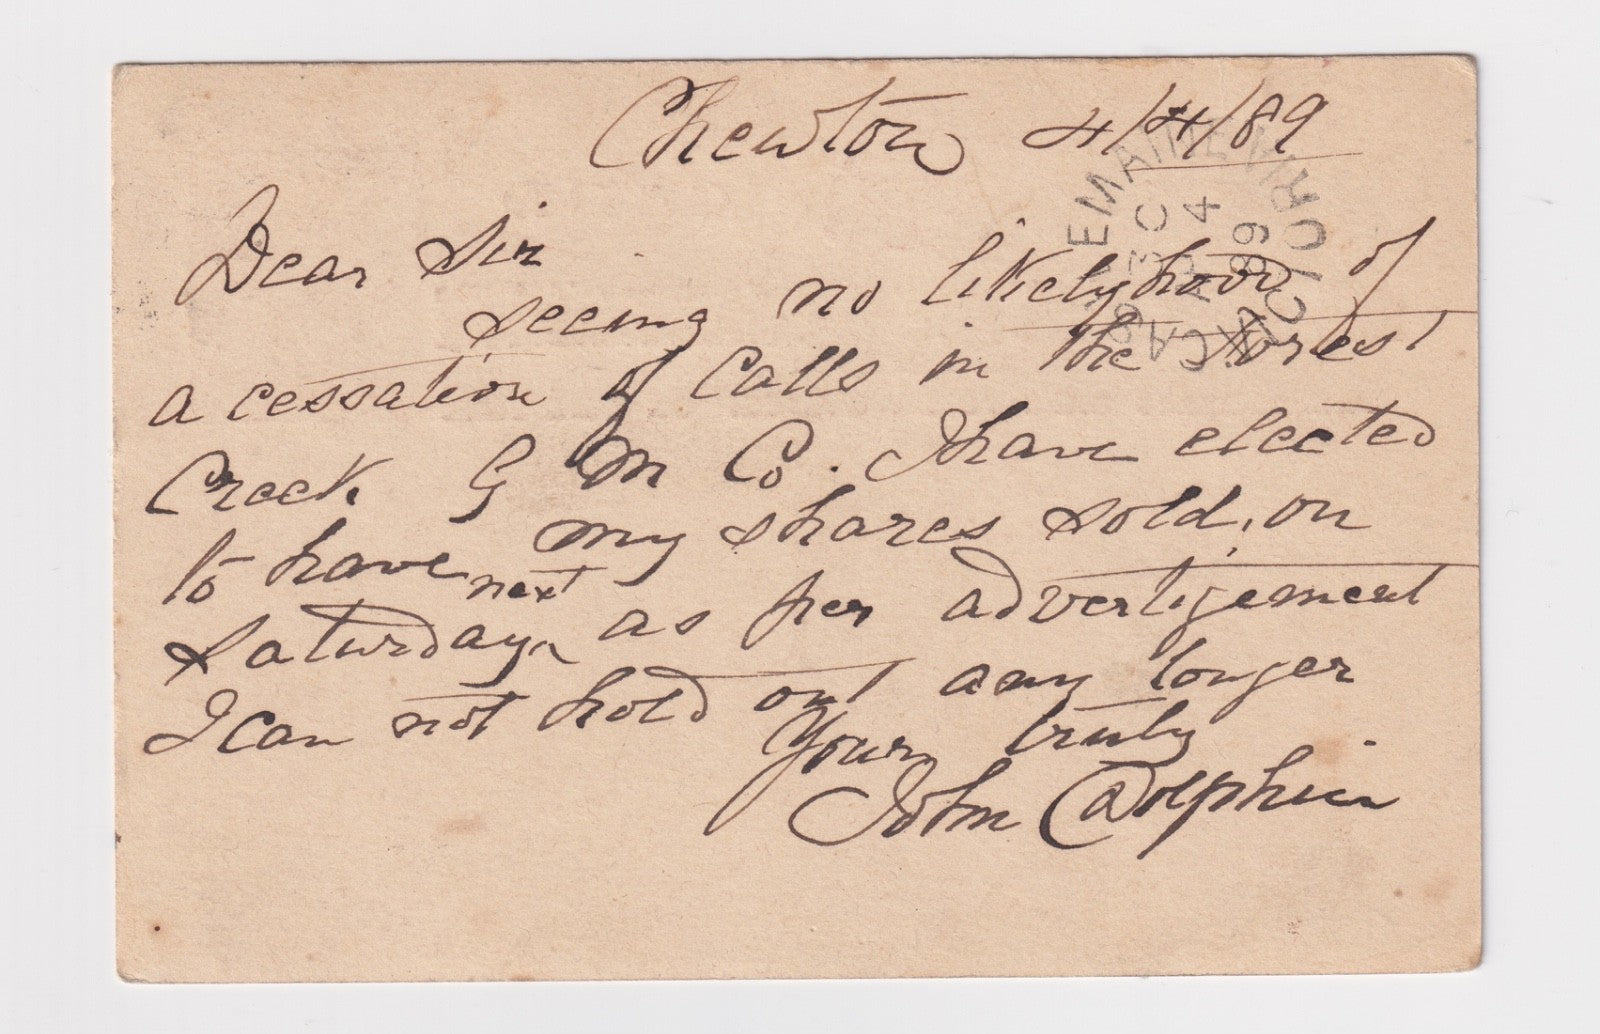 Chewton 4/4/89
Dear Sir
seeing no likelyhood of
a cessation of Calls in the Forest
Creek G M Co. I have elected
to have my shares sold, on
next
Saturday, as per advertisement
I can not hold out any longer
Yours truly
John Dolphin
CASTLEMAINE
3C
AP 4
89
VICTORIA